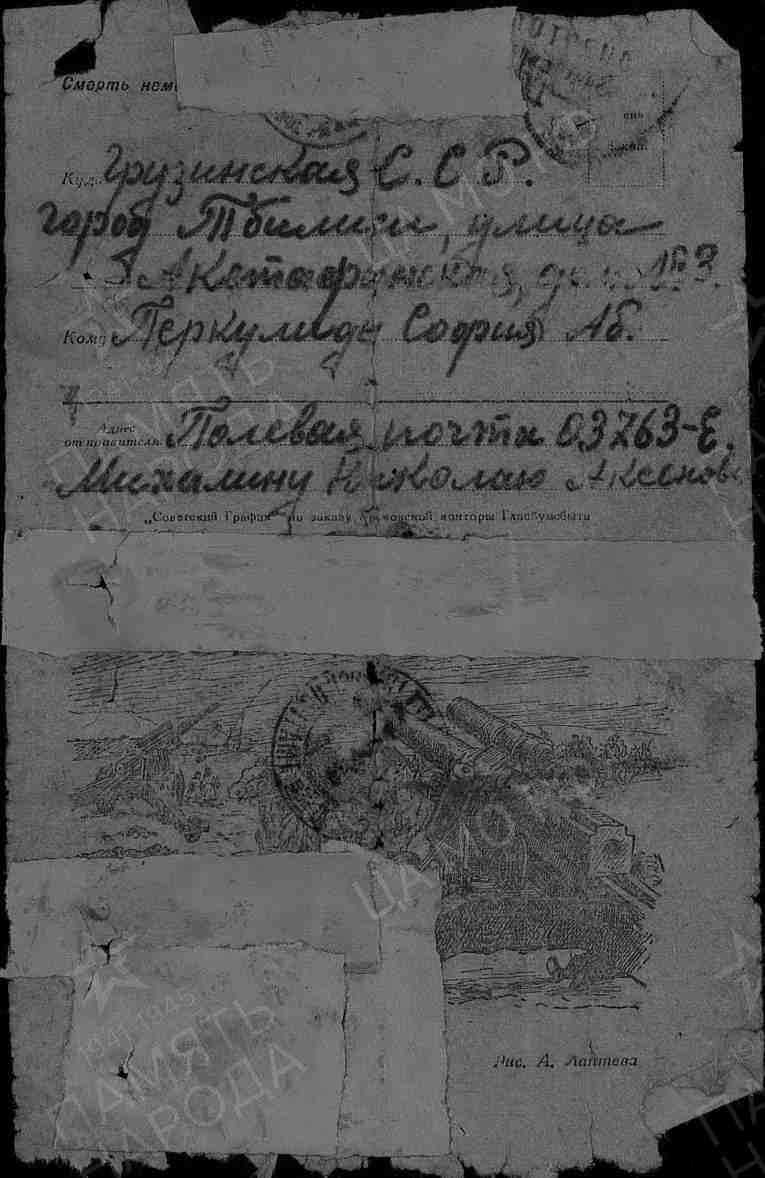 Смерть нем
Куда Грузинская С. С. Р.
город Тбилиси, улица
Акстафинская, дом №3.
Кому Перкулидзе София Аб.
Адрес
отправителя Полевая почта 03763-Е.
Михалину Николаю Аксенов
„Советский График" по заказу конторы Главбумсбыта
Рис. А. Лаптева
ЦАМО
1941-1945
ПАМЯТЬ
НАРОДА